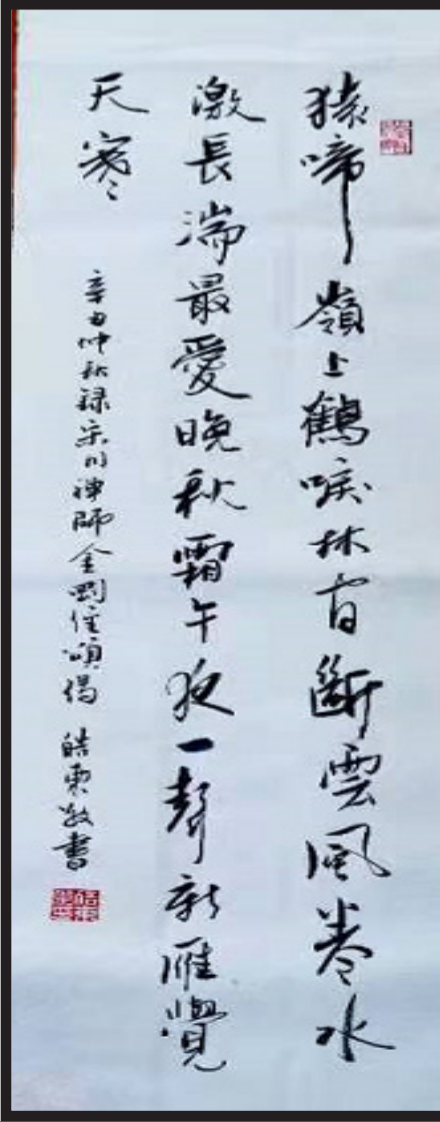 猿啼嶺上鶴唳林間斷雲風卷水
激長湍最愛晚秋霜午夜一聲新雁覺
天寒
辛丑仲秋録宋川禪師金剛經頌偈 皓敬書